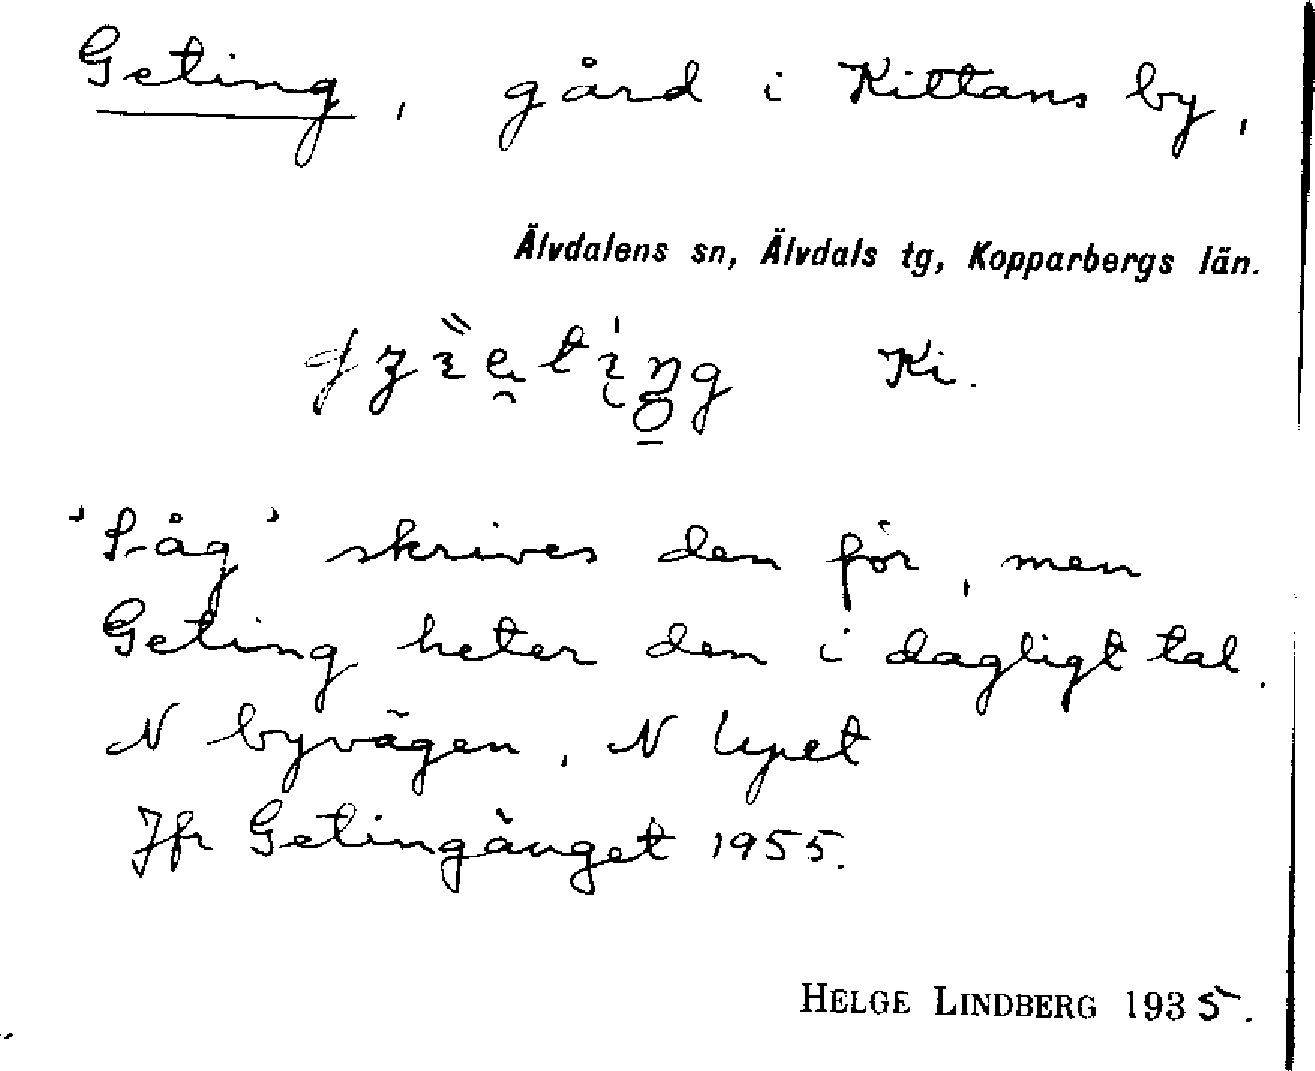 Geting, gård i Kittans by,
Älvdalens sn, Älvdals tg, Kopparbergs län.
Ki.
skrives den för, men
Geting heter den i dagligt tal.
N byvägen, N
Jfr Getingänget 1955.
HELGE LINDBERG 1935.